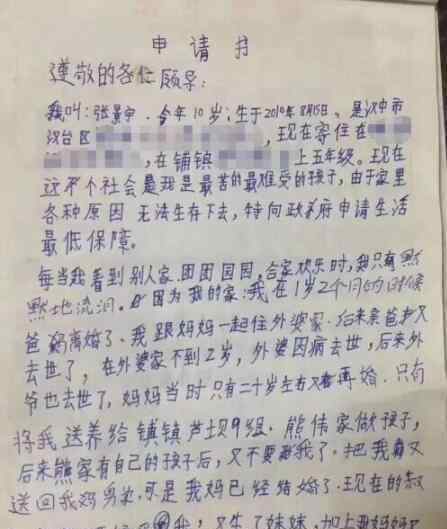 申请书
尊敬的各位领导:
我叫:张景宇.今年10岁;生于2010年8月15日.是汉中市
汉台区,现在寄住在
,在铺镇上五年级.现在
这个社会是我是最苦的最难受的孩子,由于家里
各种原因无法生存下去,特向政府申请生活
最低保障。
每当我看到别人家.团团圆圆,合家欢乐时,我只有默
默地流泪.因为我的家.我在1岁2个月的时候
爸妈离婚了.我跟妈妈一起住外婆家.后来亲爸又
去世了,在外婆家不到2岁,外婆因病去世,后来外
爷也去世了,妈妈当时只有二十岁左右又再婚.只有
将我送养给铺镇芦坝9组.熊伟家做孩子,
后来熊家有自己的孩子后,又不要我了.把我又
送回我妈身边.可是我妈已经结婚了.现在的叔
我,又生了妹妹.加上我妈妈